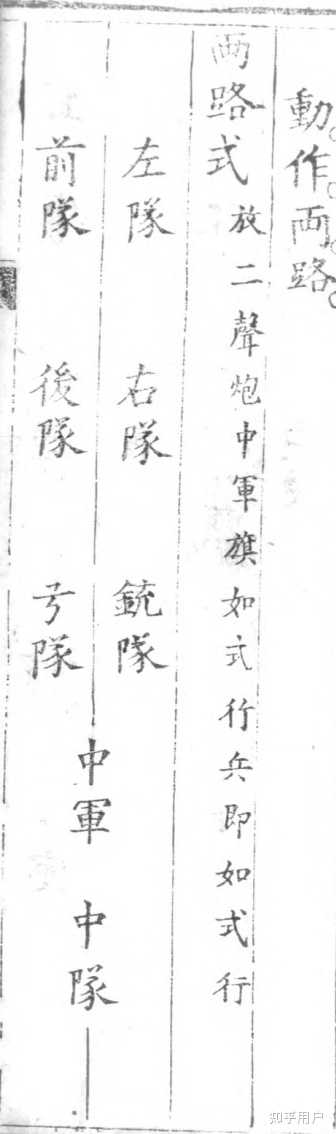 動作両路
両路式 放二聲炮中軍旗如式行兵即如式行
左隊 右隊 銃隊
前隊 後隊 弓隊
中軍 中隊
知乎用户